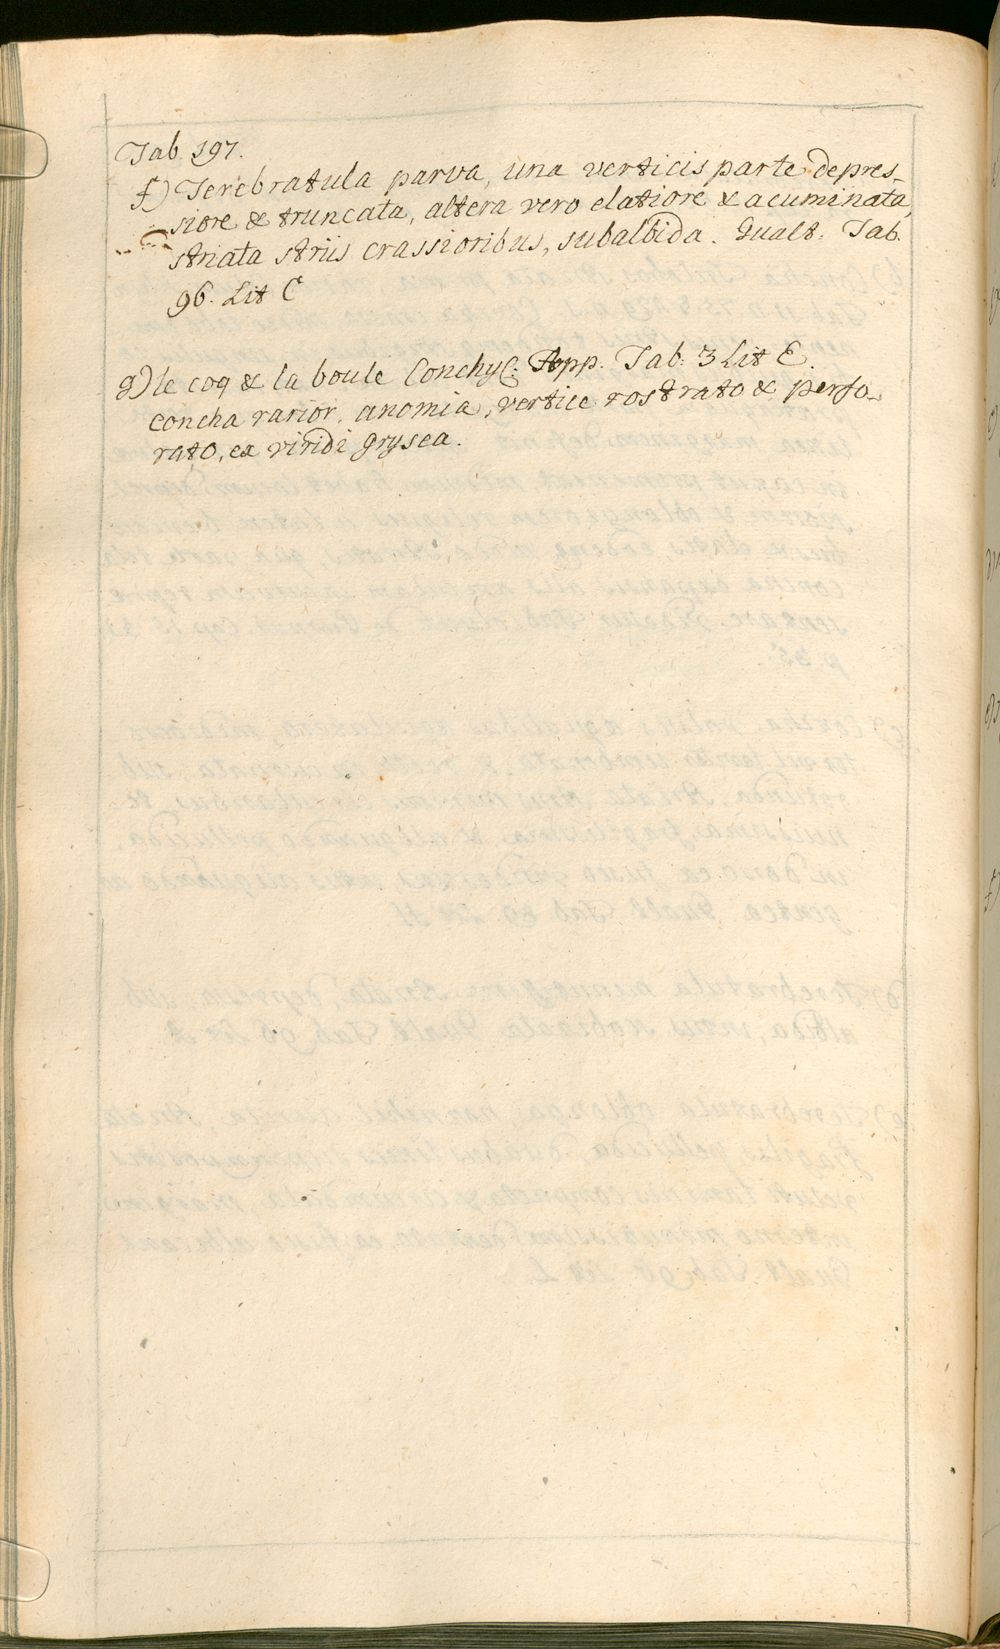 Tab 197.
f) Terebratula parva, una verticis parte depres-
siore & truncata, altera vero elatiore & acuminata,
striata striis crassioribus, subalbida. Gualt. Tab.
96. Lit C
g) le coq & la boule Conchyl. App. Tab: 3 Lit E.
concha rarior, anomia, vertice rostrato & perfo-
rato, ex viridi grysea.